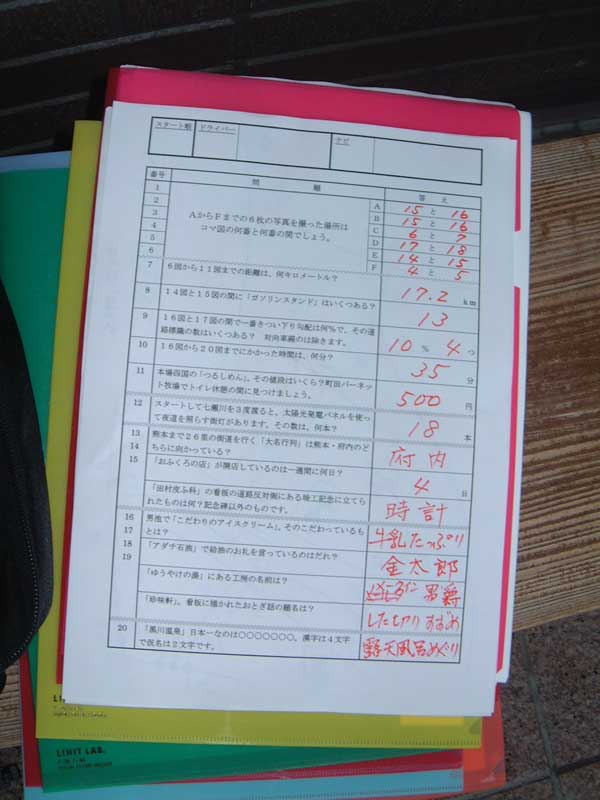 スタート順 ドライバー ナビ
番号 問題 答え
1 A 15 と 16
2 B 15 と 16
3 AからFまでの6枚の写真を撮った場所は C 6 と 7
4 コマ図の何番と何番の間でしょう。 D 17 と 18
5 E 14 と 15
6 F 4 と 5
7 6図から11図までの距離は、何キロメートル? 17.2 km
8 14図と15図の間に「ガソリンスタンド」はいくつある? 13
9 16図と17図の間で一番きつい下り勾配は何%で、その道
路標識の数はいくつある? 対向車線のは除きます。 10 % 4 つ
10 16図から20図までにかかった時間は、何分? 35 分
11 本場四国の「つるしめん」。その値段はいくら?町田バーネッ
ト牧場でトイレ休憩の間に見つけましょう。 500 円
12 スタートして七瀬川を3度渡ると、太陽光発電パネルを使っ
て夜道を照らす街灯があります。その数は、何本? 18 本
13 熊本まで26里の街道を行く「大名行列」は熊本・府内のど
14 ちらに向かっている? 府内
15 「おふくろの店」が開店しているのは一週間に何日? 4 日
「田村皮ふ科」の看板の道路反対側にある竣工記念に立てら
れたものは何?記念碑以外のものです。 時計
16 男池で「こだわりのアイスクリーム」。そのこだわっている
17 もとは? 牛乳たっぷり
18 「アダチ石油」で給油のお礼を言っているのはだれ? 金太郎
19 「ゆうやけの湯」にある工房の名前は? 男爵
「珍味軒」。看板に描かれたおとぎ話の題名は? したきりすずめ
20 「黒川温泉」日本一なのは○○○○○○○。漢字は4文字
で仮名は2文字です。 露天風呂めぐり
LIMIT LAB.